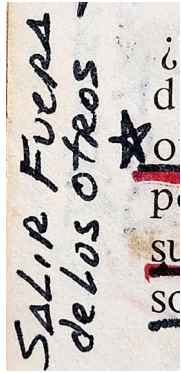 SALIR FUERA
de LOS OTROS
¿
d
o
p
su
so